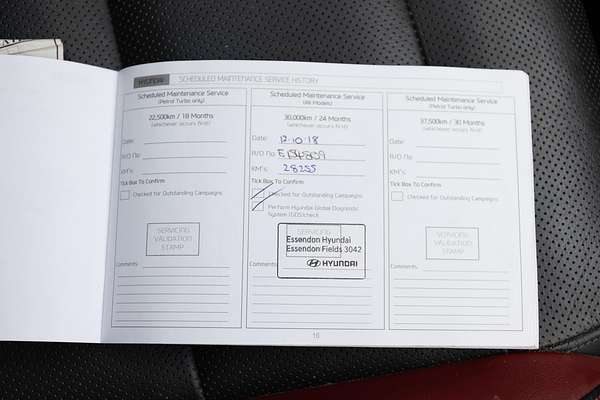 HYUNDAI SCHEDULED MAINTENANCE SERVICE HISTORY
Scheduled Maintenance Service
(Petrol Turbo only)
22,500km / 18 Months
(whichever occurs first)
Date:
R/O No:
KM's:
Tick Box To Confirm
Checked for Outstanding Campaigns
SERVICING
VALIDATION
STAMP
Comments:
Scheduled Maintenance Service
(All Models)
30,000km / 24 Months
(whichever occurs first)
Date: 12.10.18
R/O No:
KM's: 28255
Tick Box To Confirm
Checked for Outstanding Campaigns
Perform Hyundai Global Diagnostic
System (GDS) check
SERVICING
Essendon Hyundai
Essendon Fields 3042
HYUNDAI
Comments:
Scheduled Maintenance Service
(Petrol Turbo only)
37,500km / 30 Months
(whichever occurs first)
Date:
R/O No:
KM's:
Tick Box To Confirm
Checked for Outstanding Campaigns
SERVICING
VALIDATION
STAMP
Comments:
16